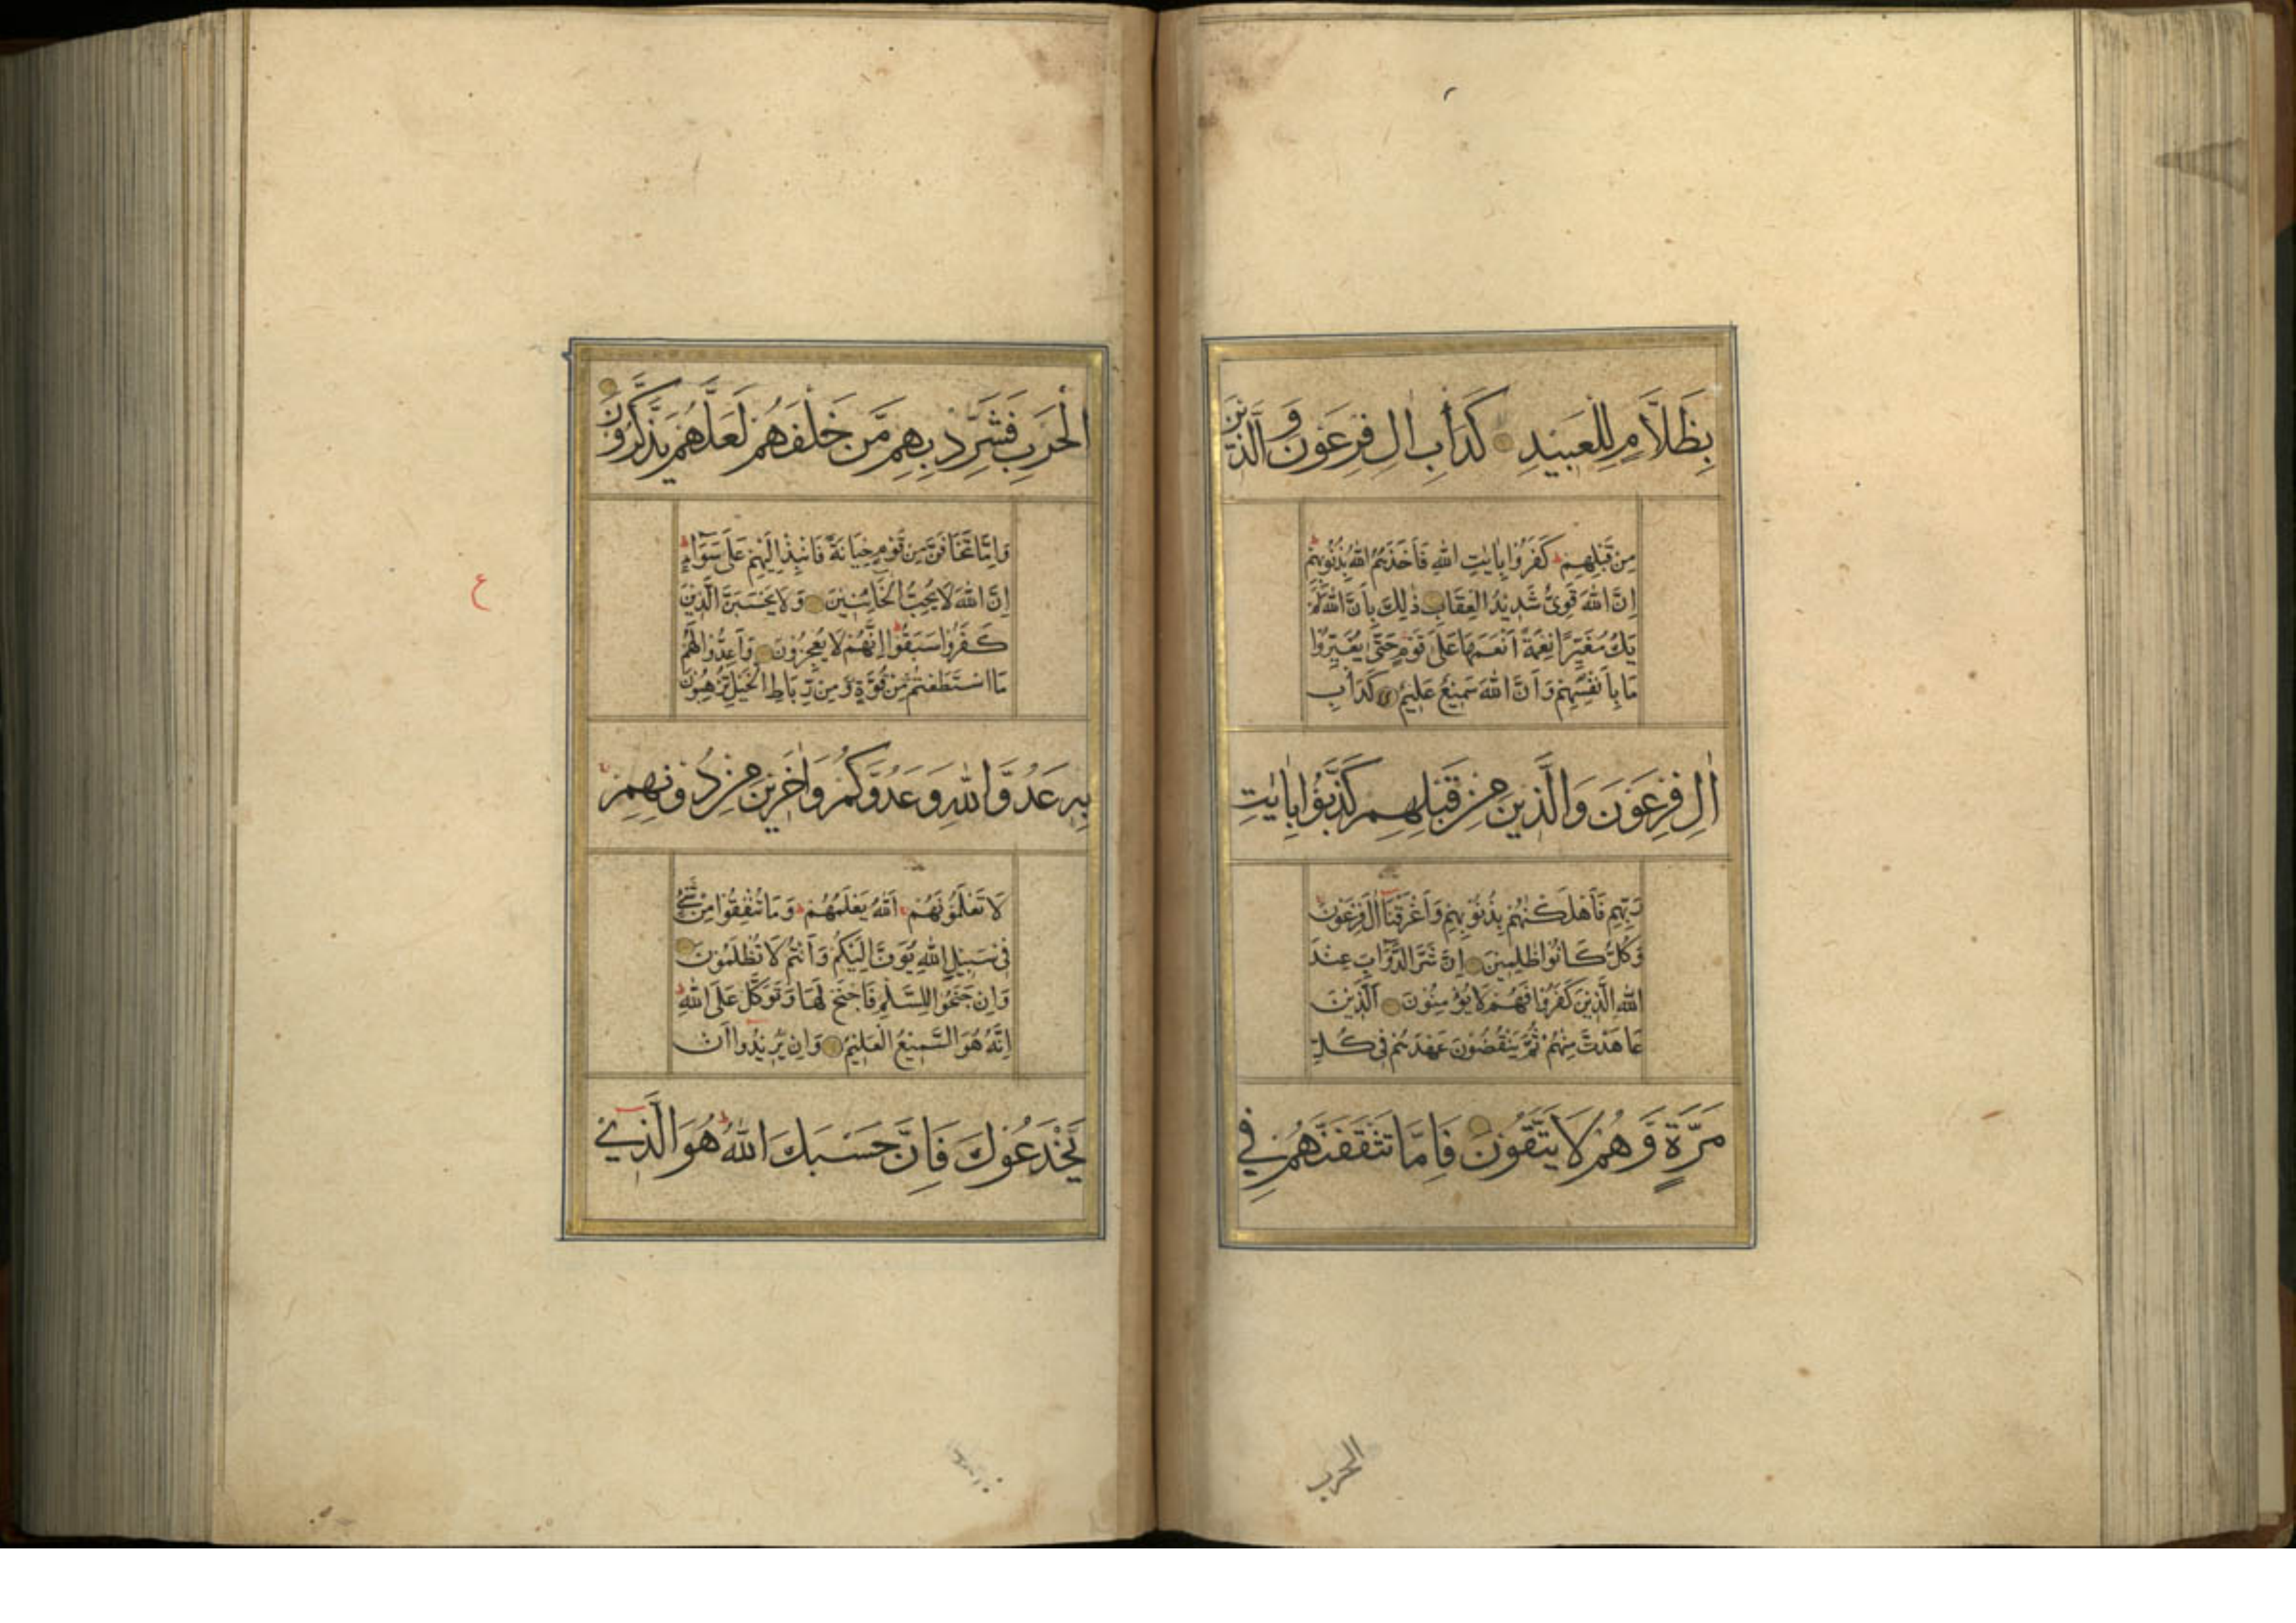 بِظَلَّامٍ لِلْعَبِيدِ كَدَأْبِ اٰلِ فِرْعَوْنَ وَالَّذِيْنَ
مِنْ قَبْلِهِمْ كَفَرُوْا بِاٰيٰتِ اللّٰهِ فَاَخَذَهُمُ اللّٰهُ بِذُنُوْبِهِمْ
اِنَّ اللّٰهَ قَوِیٌّ شَدِيْدُ الْعِقَابِ ذٰلِكَ بِاَنَّ اللّٰهَ لَمْ
يَكُ مُغَيِّرًا نِعْمَةً اَنْعَمَهَا عَلٰى قَوْمٍ حَتّٰى يُغَيِّرُوْا
مَا بِاَنْفُسِهِمْ وَاَنَّ اللّٰهَ سَمِيْعٌ عَلِيْمٌ كَدَأْبِ
اٰلِ فِرْعَوْنَ وَالَّذِيْنَ مِنْ قَبْلِهِمْ كَذَّبُوْا بِاٰيٰتِ
رَبِّهِمْ فَاَهْلَكْنٰهُمْ بِذُنُوْبِهِمْ وَاَغْرَقْنَا اٰلَ فِرْعَوْنَ
وَكُلٌّ كَانُوْا ظٰلِمِيْنَ اِنَّ شَرَّ الدَّوَآبِّ عِنْدَ
اللّٰهِ الَّذِيْنَ كَفَرُوْا فَهُمْ لَا يُؤْمِنُوْنَ اَلَّذِيْنَ
عَاهَدْتَ مِنْهُمْ ثُمَّ يَنْقُضُوْنَ عَهْدَهُمْ فِیْ كُلِّ
مَرَّةٍ وَّهُمْ لَا يَتَّقُوْنَ فَاِمَّا تَثْقَفَنَّهُمْ فِي
الحرب
الْحَرْبِ فَشَرِّدْ بِهِمْ مَّنْ خَلْفَهُمْ لَعَلَّهُمْ يَذَّكَّرُوْنَ
وَاِمَّا تَخَافَنَّ مِنْ قَوْمٍ خِيَانَةً فَانْبِذْ اِلَيْهِمْ عَلٰى سَوَآءٍ
اِنَّ اللّٰهَ لَا يُحِبُّ الْخَآئِنِيْنَ وَلَا يَحْسَبَنَّ الَّذِيْنَ
كَفَرُوْا سَبَقُوْا اِنَّهُمْ لَا يُعْجِزُوْنَ وَاَعِدُّوْا لَهُمْ
مَا اسْتَطَعْتُمْ مِّنْ قُوَّةٍ وَّمِنْ رِّبَاطِ الْخَيْلِ تُرْهِبُوْنَ
بِهٖ عَدُوَّ اللّٰهِ وَعَدُوَّكُمْ وَاٰخَرِيْنَ مِنْ دُوْنِهِمْ
لَا تَعْلَمُوْنَهُمْ اَللّٰهُ يَعْلَمُهُمْ وَمَا تُنْفِقُوْا مِنْ شَیْءٍ
فِیْ سَبِيْلِ اللّٰهِ يُوَفَّ اِلَيْكُمْ وَاَنْتُمْ لَا تُظْلَمُوْنَ
وَاِنْ جَنَحُوْا لِلسَّلْمِ فَاجْنَحْ لَهَا وَتَوَكَّلْ عَلَى اللّٰهِ
اِنَّهٗ هُوَ السَّمِيْعُ الْعَلِيْمُ وَاِنْ يُّرِيْدُوْا اَنْ
يَّخْدَعُوْكَ فَاِنَّ حَسْبَكَ اللّٰهُ هُوَ الَّذِيْ
ع